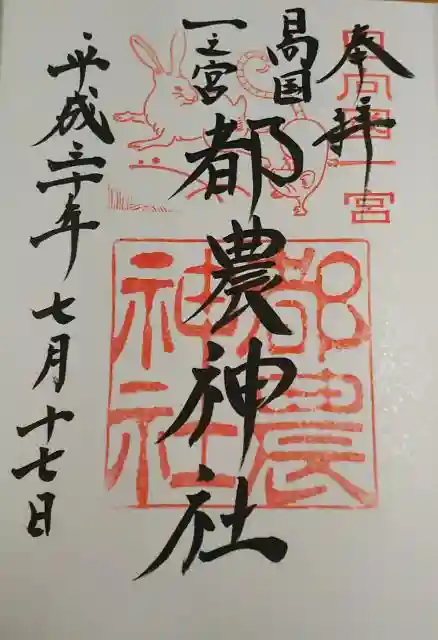 奉拝
日向国一宮
日向国
一之宮
都農神社
都農
神社
平成三十年七月十七日